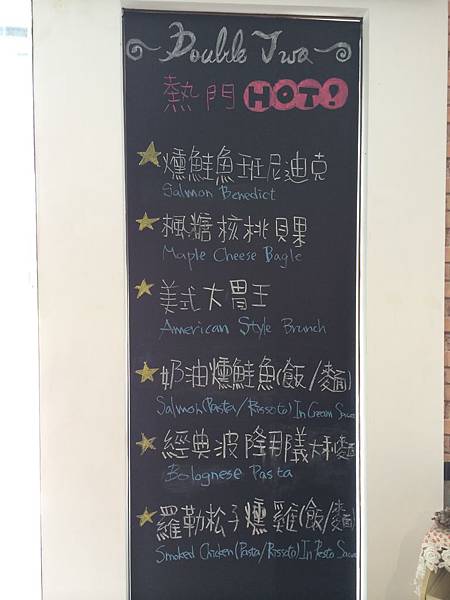 Double Two
熱門 HOT!
燻鮭魚班尼迪克
Salmon Benedict
楓糖核桃貝果
Maple Cheese Bagle
美式大胃王
American Style Brunch
奶油燻鮭魚(飯/麵)
Salmon(Pasta/Rissoto)In Cream Sauce
經典波隆那義大利麵
Bolognese Pasta
羅勒松子燻雞(飯/麵)
Smoked Chicken(Pasta/Rissoto)In Pesto Sauce